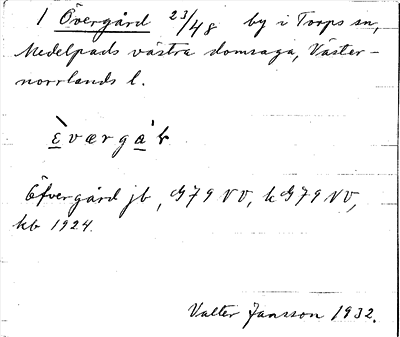 1 Övergård 23/48 by i Torps sn,
Medelpads västra domsaga, Väster-
norrlands l.
Öfvergård jb, G79 NV, k G79 NV,
kb 1924.
Valter Jansson 1932.